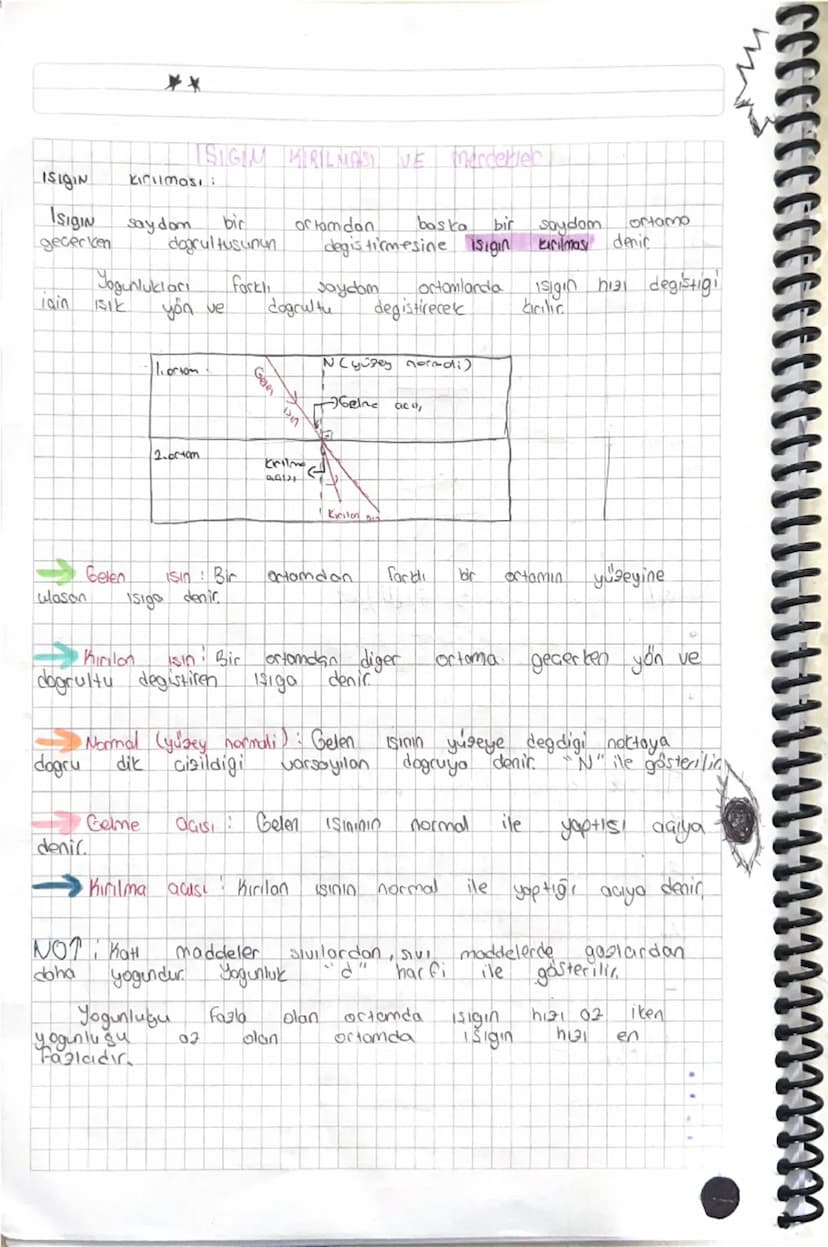 IŞIĞIN KIRILMASI VE mercekler
ISIGIN kırılması:
Isıgın saydam bir ortamdan baska bir saydam ortama
gecerken dogrultusunun degistirmesine isıgın kırılması denir.
Yogunlukları farklı saydam ortamlarda ısıgın hızı degistigi
icin ısık yön ve dogrultu degistirecek kırılır.
1.ortam.
N (yüzey normali)
Gelen ısın
Gelme acı,
2.ortam
Kırılma
acısı
Kırılan ısın
Gelen ısın: Bir ortamdan farklı bir ortamın yüzeyine
ulasan ısıga denir.
Kırılan ısın: Bir ortamdan diger ortama gecerken yön ve
dogrultu degistiren ısıga denir.
Normal (yüzey normali): Gelen ısının yüzeye degdigi noktaya
dogru dik cizildigi varsayılan dogruya denir. "N" ile gösterilir.
Gelme acısı: Gelen ısınının normal ile yaptısı acıya
denir.
Kırılma acısı: Kırılan ısının normal ile yaptığı acıya denir.
NOT: Katı maddeler sıvılardan, sıvı maddelerde gazlardan
daha yogundur. Yogunluk "d" harfi ile gösterilir.
Yogunlugu fazla olan ortamda ısıgın hızı az iken
yogunlugu az olan ortamda ışıgın hızı en
fazlcıdır.